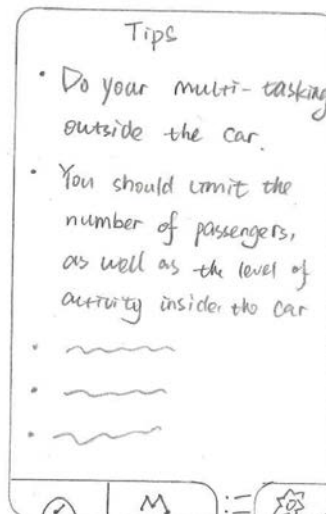 Tips
• Do your multi-tasking
outside the car.
• You should limit the
number of passengers,
as well as the level of
activity inside the car